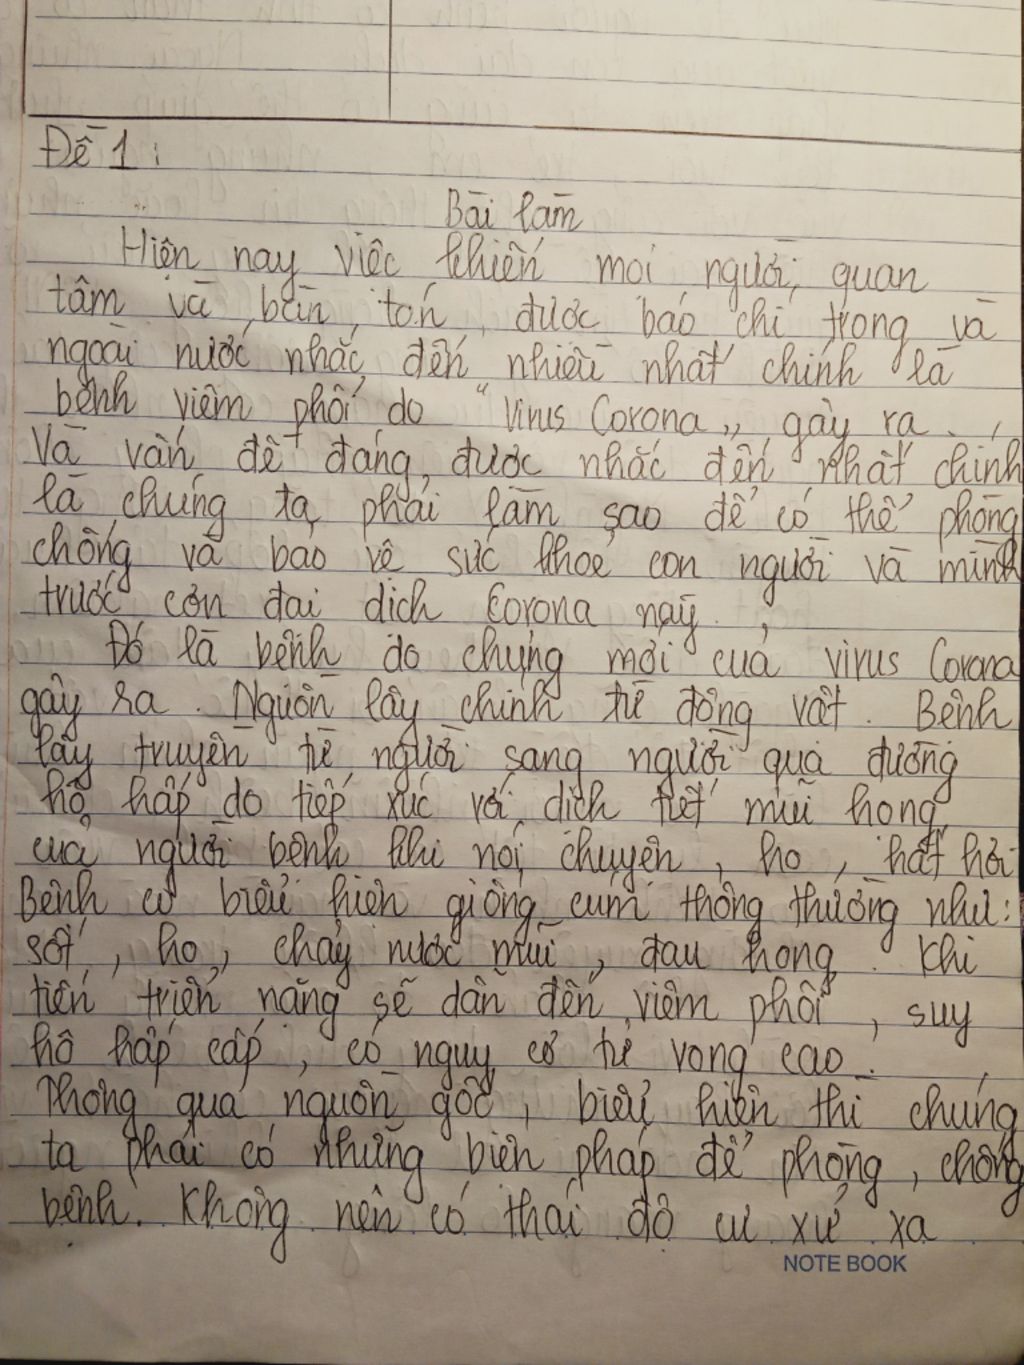 Đề 1:
Bài làm
Hiện nay việc khiến mọi người quan
tâm và bàn tán, được báo chí trong và
ngoài nước nhắc đến nhiều nhất chính là
bệnh viêm phổi do "Virus Corona" gây ra.
Và vấn đề đáng được nhắc đến nhất chính
là chúng ta phải làm sao để có thể phòng
chống và bảo vệ sức khoẻ con người và mình
trước cơn đại dịch Corona này.
Đó là bệnh do chủng mới của virus Corona
gây ra. Nguồn lây chính từ động vật. Bệnh
lây truyền từ người sang người qua đường
hô hấp do tiếp xúc với dịch tiết mũi họng
của người bệnh khi nói chuyện, ho, hắt hơi
Bệnh có biểu hiện giống cúm thông thường như:
sốt, ho, chảy nước mũi, đau họng. Khi
tiến triển nặng sẽ dẫn đến viêm phổi, suy
hô hấp cấp, có nguy cơ tử vong cao.
Thông qua nguồn gốc, biểu hiện thì chúng
ta phải có những biện pháp để phòng, chống
bệnh. Không nên có thái độ cư xử xa
NOTE BOOK